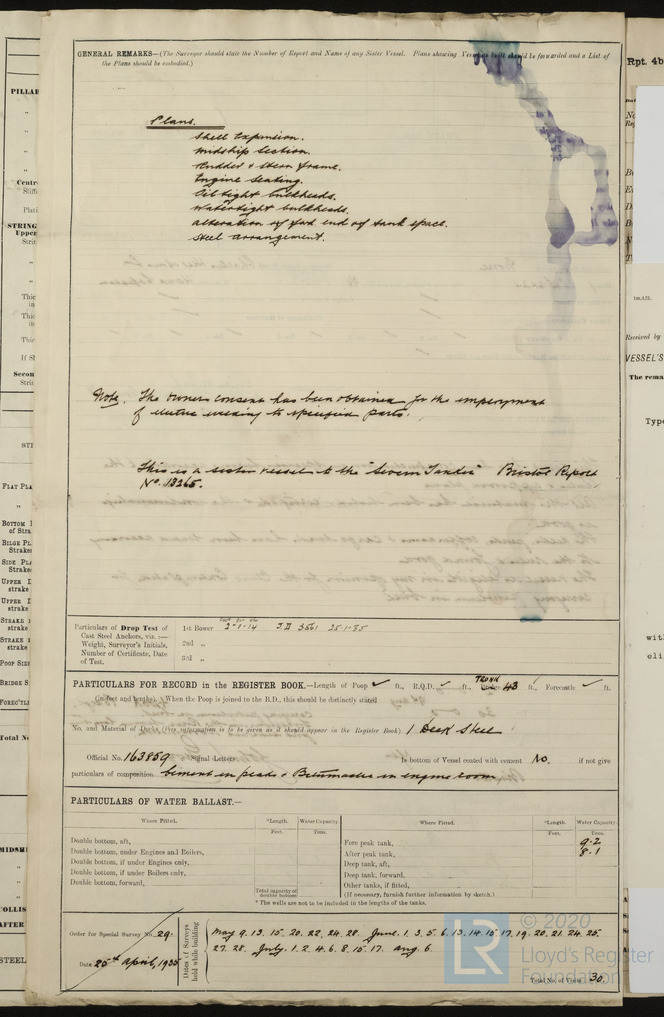 GENERAL REMARKS—(The Surveyor should state the Number of Report and Name of any Sister Vessel. Plans showing Vessel as built should be forwarded and a List of
the Plans should be embodied.)
Plans.
Shell Expansion.
Midship Section.
Rudder & Stern frame.
Engine Seating.
Oiltight bulkheads.
Watertight bulkheads.
alteration of ford end of tank space.
Steel arrangement.
Note. The Owners consent has been obtained for the employment
of electric welding to specified parts.
This is a sister vessel to the "Severn Tanker" Bristol Report
No. 13265.
Particulars of Drop Test of
Cast Steel Anchors, viz.:—
Weight, Surveyor's Initials,
Number of Certificate, Date
of Test.
1st Bower 2-1-14 3561 25-1-35
2nd „
3rd „
PARTICULARS FOR RECORD in the REGISTER BOOK.—Length of Poop ✓ ft., R.Q.D. ✓ ft., TRUNK 43 ft., Forecastle ✓ ft.
(in feet and tenths). When the Poop is joined to the B.D., this should be distinctly stated
No. and Material of Decks (this information is to be given as it should appear in the Register Book). 1 Deck Steel
Official No. 163859 Signal Letters Is bottom of Vessel coated with cement No. if not give
particulars of composition Cement in peaks & Bitumastic in engine room
PARTICULARS OF WATER BALLAST.—
Where Fitted. *Length. Water Capacity Where Fitted. *Length. Water Capacity
Feet. Tons. Feet. Tons.
Double bottom, aft, Fore peak tank, 9.2
Double bottom, under Engines and Boilers, After peak tank, 8.1
Double bottom, if under Engines only, Deep tank, aft,
Double bottom, if under Boilers only, Deep tank, forward,
Double bottom, forward, Other tanks, if fitted,
Total capacity of double bottom (If necessary, furnish further information by sketch.)
* The wells are not to be included in the lengths of the tanks.
Order for Special Survey No. 29.
Date 25th April, 1935
Dates of Surveys held while building
May 9. 13. 15. 20. 22. 24. 28. June. 1. 3. 5. 6. 13. 14. 15. 17. 19. 20. 21. 24. 25.
27. 28. July. 1. 2. 4. 6. 8. 15. 17. Aug. 6.
Total No. of Visits 30.
© 2020
LR Lloyd's Register
Foundation
Rpt. 4b
Received by
VESSEL'S
The rema